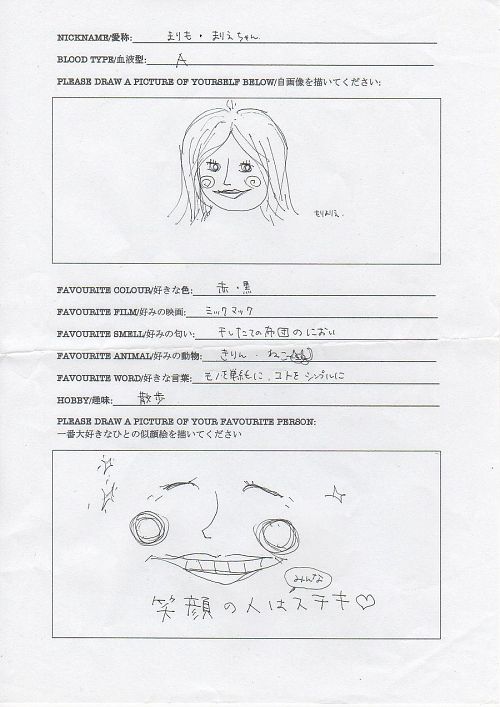 NICKNAME/愛称: まりも・まりえちゃん
BLOOD TYPE/血液型: A
PLEASE DRAW A PICTURE OF YOURSELF BELOW/自画像を描いてください:
FAVOURITE COLOUR/好きな色: 赤・黒
FAVOURITE FILM/好みの映画: ミックマック
FAVOURITE SMELL/好みの匂い: 干したての布団のにおい
FAVOURITE ANIMAL/好みの動物: きりん・ねこ
FAVOURITE WORD/好きな言葉: モノを単純に、コトをシンプルに
HOBBY/趣味: 散歩
PLEASE DRAW A PICTURE OF YOUR FAVOURITE PERSON:
一番大好きなひとの似顔絵を描いてください
みんな
笑顔の人はステキ♡